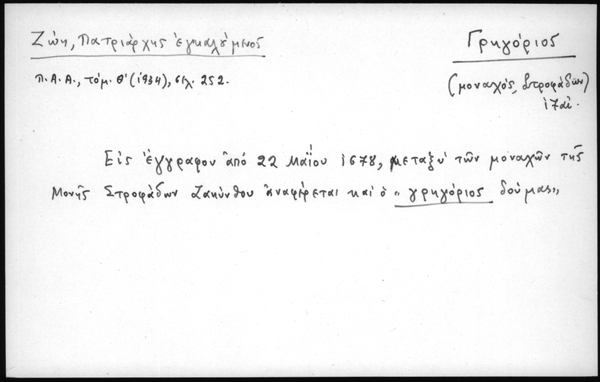 Ζώη, Πατριάρχης ἐγκαλούμενος
Γρηγόριος
Π.Α.Α., τόμ. Θ' (1934), σελ. 252.
(μοναχός, Στροφάδων)
17 αἰ.
Εἰς ἔγγραφον ἀπό 22 Μαΐου 1678, μεταξύ τῶν μοναχῶν τῆς
Μονῆς Στροφάδων Ζακύνθου ἀναφέρεται καί ὁ "γρηγόριος δούμας"